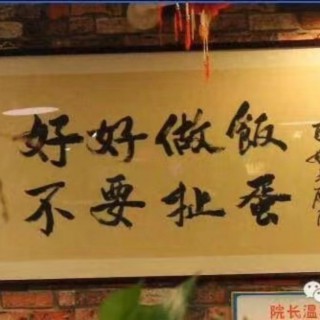 好好做飯
不要扯蛋
院长温